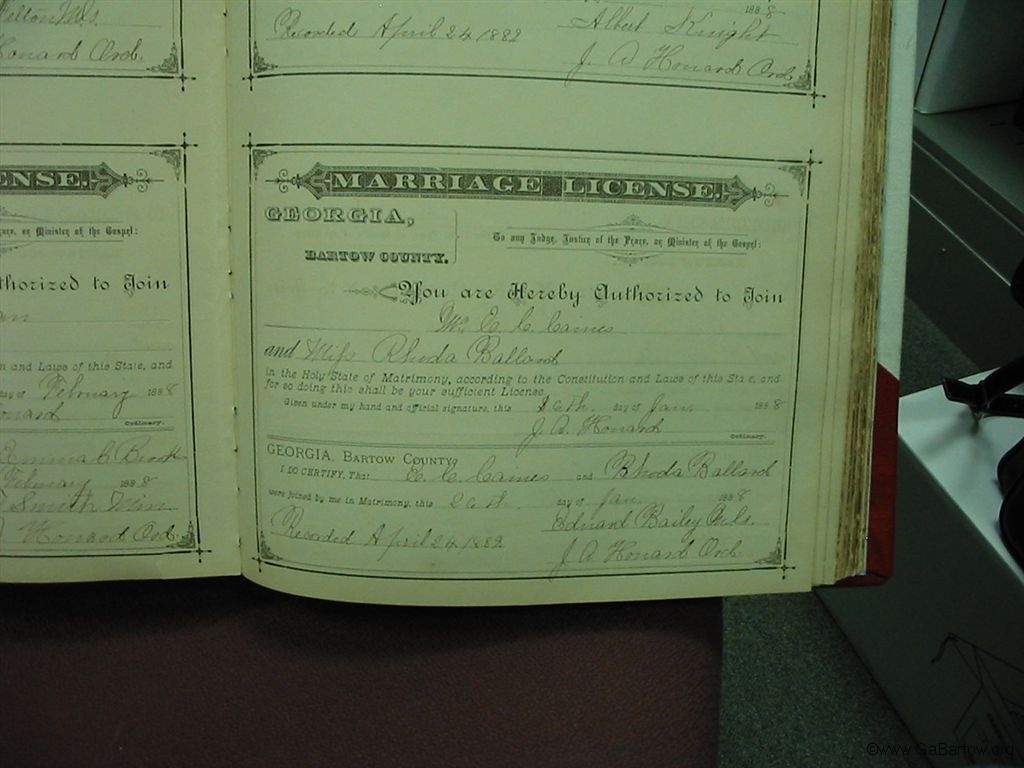 Helton M.G.
Howard Ord.
1888
Recorded April 24, 1882
Albert Knight
J. A Howard Ord.
ENSE.
Peace, or Minister of the Gospel:
thorized to Join
n and Laws of this State, and
day of February 1888
Howard
Ordinary.
Emma C Brook
February 1888
Smith Min
Howard Ord.
MARRIAGE LICENSE.
GEORGIA,
BARTOW COUNTY.
To any Judge, Justice of the Peace, or Minister of the Gospel:
You are Hereby Authorized to Join
Mr. E. C. Caines
and Miss Rhoda Ballard
in the Holy State of Matrimony, according to the Constitution and Laws of this State, and
for so doing this shall be your sufficient License.
Given under my hand and official signature, this 26th. day of Jan. 1888
J. A. Howard
Ordinary.
GEORGIA, BARTOW COUNTY.
I DO CERTIFY, That E. C. Caines and Rhoda Ballard
were joined by me in Matrimony, this 26th. day of Jan. 1888
Edward Bailey
Recorded April 24, 1882
J. A Howard Ord.
©www.GaBartow.org